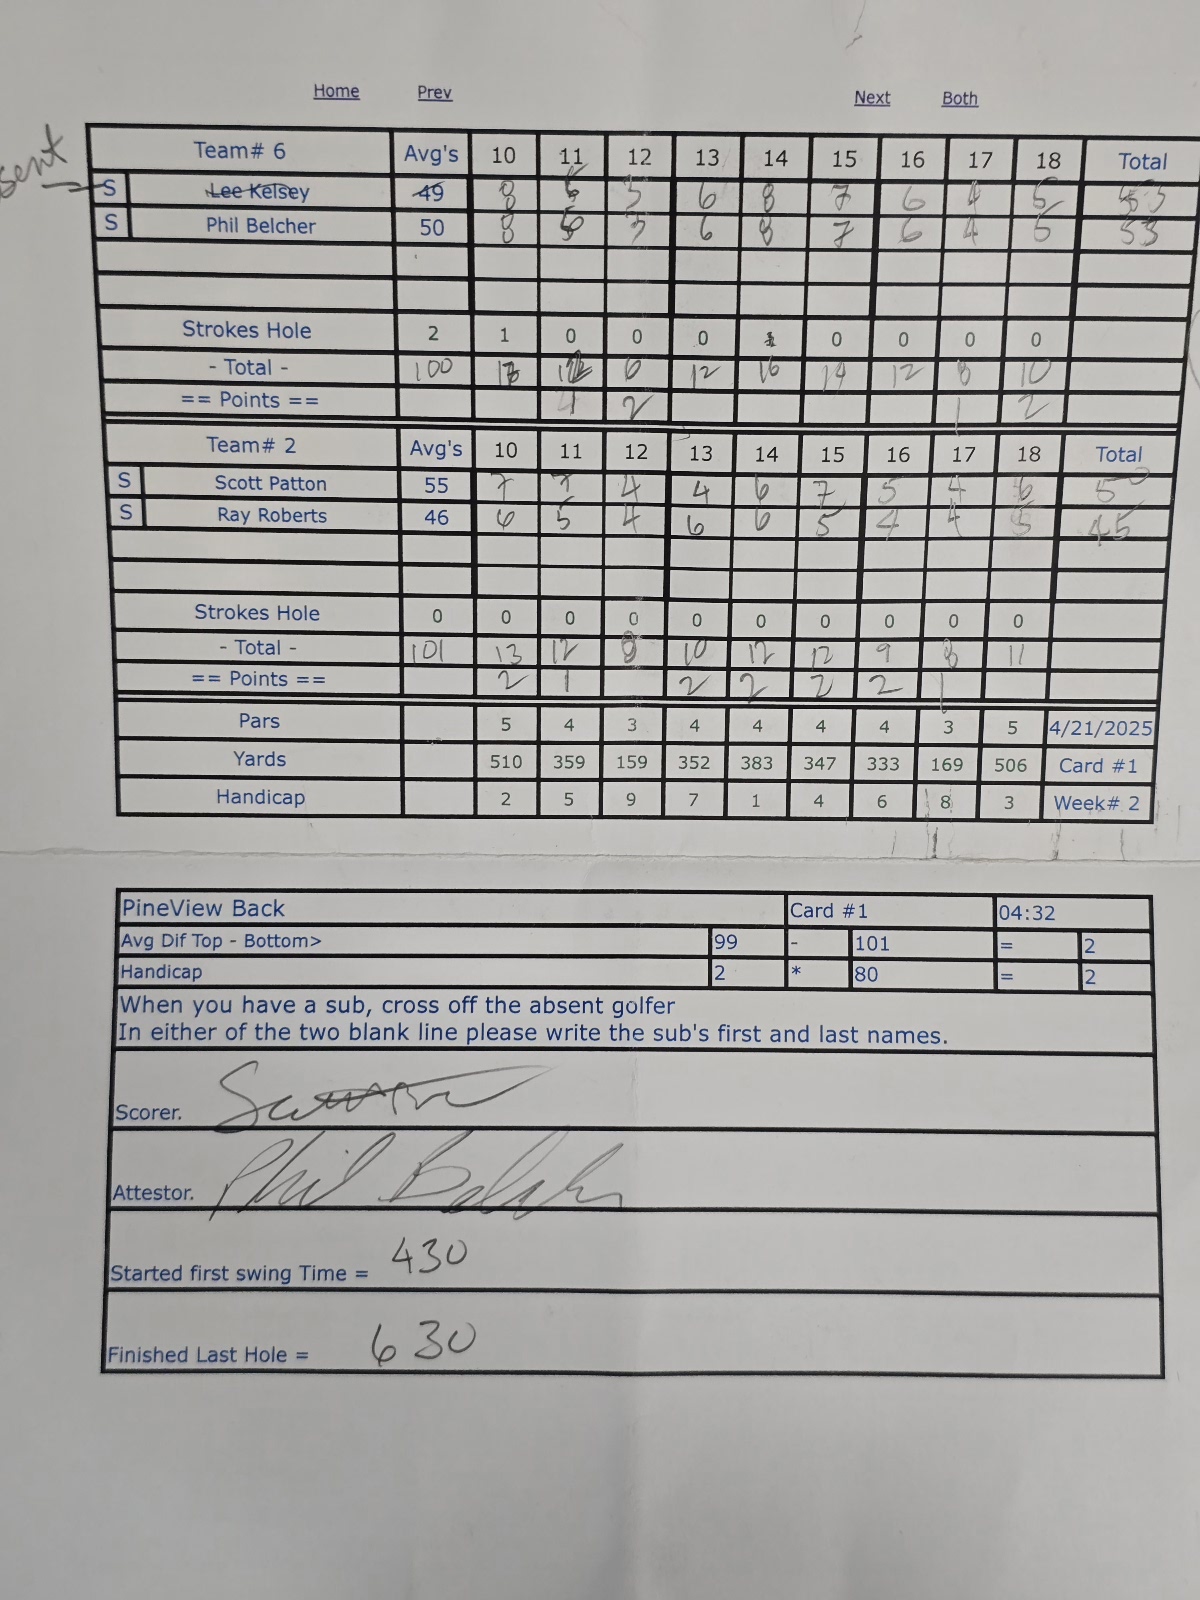 Home Prev Next Both
Team# 6 Avg's 10 11 12 13 14 15 16 17 18 Total
sent
S Lee Kelsey 49 8 3 6 8 7 6 4 5 53
S Phil Belcher 50 8 3 6 8 7 6 4 5 53
Strokes Hole 2 1 0 0 0 1 0 0 0 0
- Total - 100 12 6 12 16 14 12 8 10
== Points == 2 1 2
Team# 2 Avg's 10 11 12 13 14 15 16 17 18 Total
S Scott Patton 55 7 7 4 4 6 7 5 4 6 50
S Ray Roberts 46 6 5 4 6 6 5 4 4 5 45
Strokes Hole 0 0 0 0 0 0 0 0 0 0
- Total - 101 13 12 8 10 12 12 9 8 11
== Points == 2 1 2 2 2 2 1
Pars 5 4 3 4 4 4 4 3 5 4/21/2025
Yards 510 359 159 352 383 347 333 169 506 Card #1
Handicap 2 5 9 7 1 4 6 8 3 Week# 2
PineView Back Card #1 04:32
Avg Dif Top - Bottom> 99 - 101 = 2
Handicap 2 * 80 = 2
When you have a sub, cross off the absent golfer
In either of the two blank line please write the sub's first and last names.
Scorer.
Attestor. Phil Belcher
Started first swing Time = 430
Finished Last Hole = 630